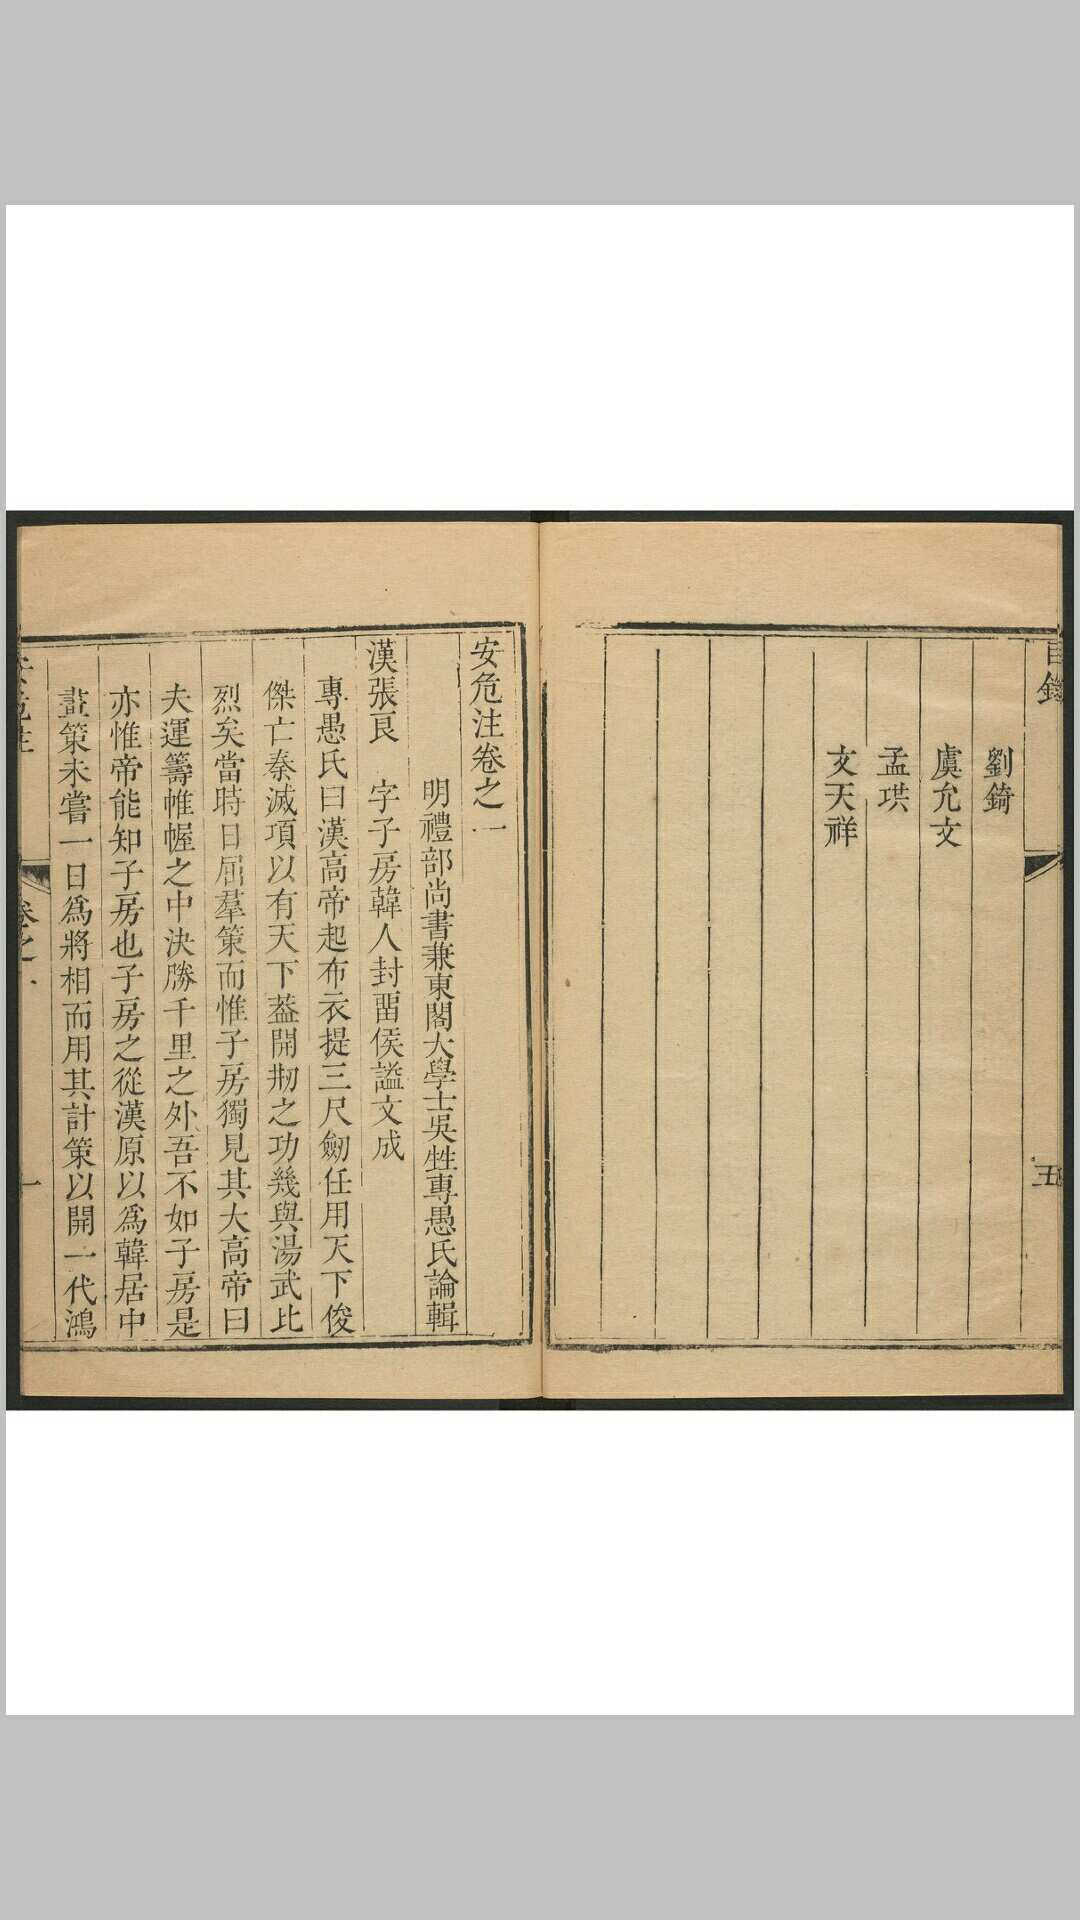 目錄
五
劉錡
虞允文
孟珙
文天祥
安危注卷之一
明禮部尚書兼東閣大學士吳甡專愚氏論輯
漢張良　字子房韓人封畱侯謚文成
專愚氏曰漢高帝起布衣提三尺劒任用天下俊
傑亡秦滅項以有天下葢開刱之功幾與湯武比
烈矣當時曰屈羣策而惟子房獨見其大高帝曰
夫運籌帷幄之中決勝千里之外吾不如子房是
亦惟帝能知子房也子房之從漢原以爲韓居中
畫策未嘗一日爲將相而用其計策以開一代鴻
安危注
卷之一
一